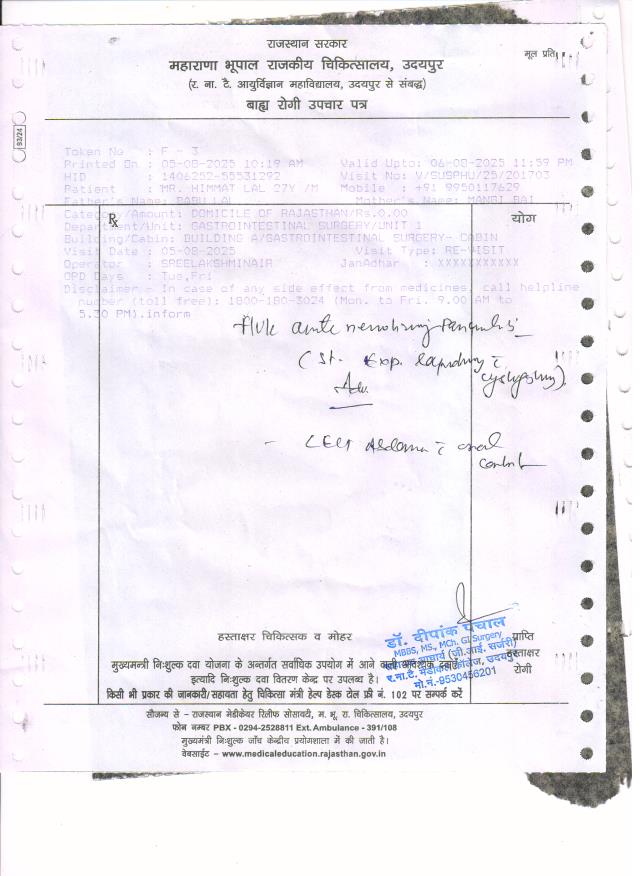 राजस्थान सरकार
मूल प्रति
महाराणा भूपाल राजकीय चिकित्सालय, उदयपुर
(र. ना. टै. आयुर्विज्ञान महाविद्यालय, उदयपुर से संबद्ध)
बाह्य रोगी उपचार पत्र
93/24
Token No : F - 3
Printed On : 05-08-2025 10:19 AM Valid Upto: 06-08-2025 11:59 PM
HID : 1406252-55531292 Visit No: V/SUSPHU/25/201703
Patient : MR. HIMMAT LAL 27Y /M Mobile : +91 9950117629
Father's Name: BABU LAL Mother's Name: MANGI BAI
Category/Amount: DOMICILE OF RAJASTHAN/Rs.0.00
℞ योग
Department/Unit: GASTROINTESTINAL SURGERY/UNIT 1
Building/Cabin: BUILDING A/GASTROINTESTINAL SURGERY- CABIN
Visit Date : 05-08-2025 Visit Type: RE-VISIT
Operator : SREELAKSHMINAIR JanAdhar : XXXXXXXXXXX
OPD Days : Tue,Fri
Disclaimer - In case of any side effect from medicines, call helpline
number (toll free): 1800-180-3024 (Mon. to Fri. 9.00 AM to
5.30 PM).inform
acute necrotising Pancreatitis
Exp. laparotomy
Adv.
- CECT Abdomen c oral
contrast
हस्ताक्षर चिकित्सक व मोहर
डॉ. दीपांक पंचाल
MBBS, MS., MCh. GI Surgery
आचार्य (जी.आई. सर्जरी)
र.ना.टै. मेडीकल कॉलेज, उदयपुर
मो.नं.-9530456201
प्राप्ति
हस्ताक्षर
रोगी
मुख्यमन्त्री निःशुल्क दवा योजना के अन्तर्गत सर्वाधिक उपयोग में आने वाली आवश्यक दवाईयां
इत्यादि निःशुल्क दवा वितरण केन्द्र पर उपलब्ध है।
किसी भी प्रकार की जानकारी/सहायता हेतु चिकित्सा मंत्री हेल्प डेस्क टोल फ्री नं. 102 पर सम्पर्क करें
सौजन्य से – राजस्थान मेडीकेयर रिलीफ सोसायटी, म. भू. रा. चिकित्सालय, उदयपुर
फोन नम्बर PBX - 0294-2528811 Ext. Ambulance - 391/108
मुख्यमंत्री निःशुल्क जाँच केन्द्रीय प्रयोगशाला में की जाती है।
वेबसाईट – www.medicaleducation.rajasthan.gov.in